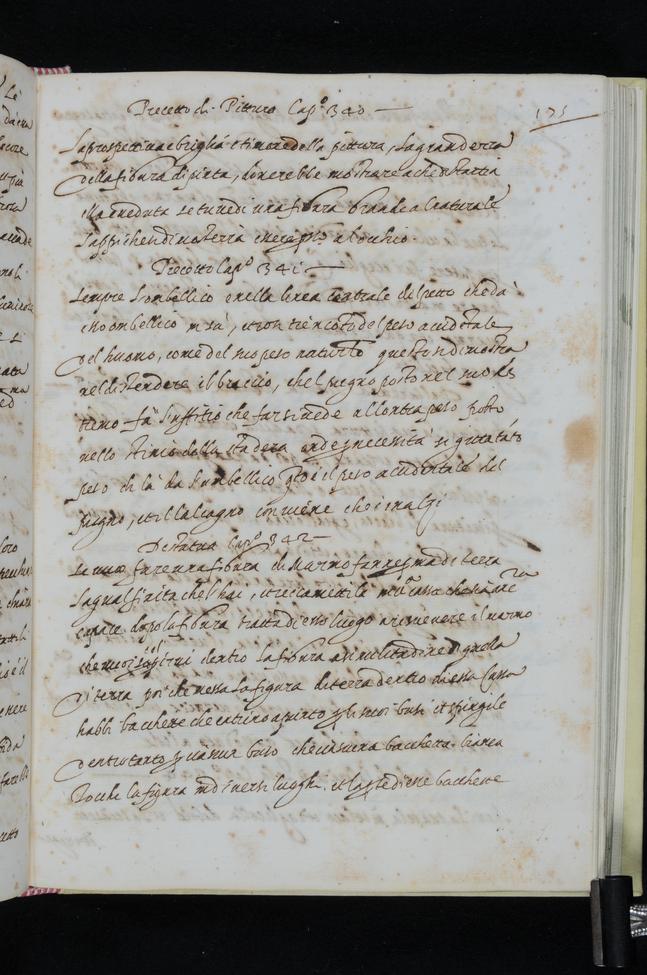 Precetto di Pittura Cap.º 340
175
La prospettiva è briglia e timone della pittura, La grandezza
della figura dipinta, doverebbe mostrare a che distanza
ella è veduta se tu vedi una figura grande al naturale
sappi che si dimostra esser presso al occhio.
Precetto Cap.º 341
Sempre l'ombellico è nella linea centrale del petto che da
esso ombellico in sù, et così tien conto del peso accidentale
del huomo, come del suo peso naturale questo si dimostra
nel distendere il braccio, che l pugno posto nel suo es
tremo fà l'uffitio che far si vede al contrapeso posto
nello stremo della stadera onde p necessità si gitta tāto
peso di là da l'ombellico q̄to è il peso accidentale del
pugno, et il calcagno conviene che s'inalzi
De statua Cap.º 342
Se vuoi fare una figura di Marmo fanne prima di terra
la qual finita che l'hai, et seccamettila in una cassa che sia
capace, dopo la figura tratta di esso luogo a ricevere il marmo
che vuoi scolpirvi dentro la figura a similitudine di quella
di terra poi che messa la figura di terra dentro di essa Cassa
habbi bacchette che entrino apunto p li suoi busi et spingile
dentro tanto p ciascun buso che ciascuna bacchetta bianca
Tocchi la figura in diversi luoghi. et la parte di esse bacchette